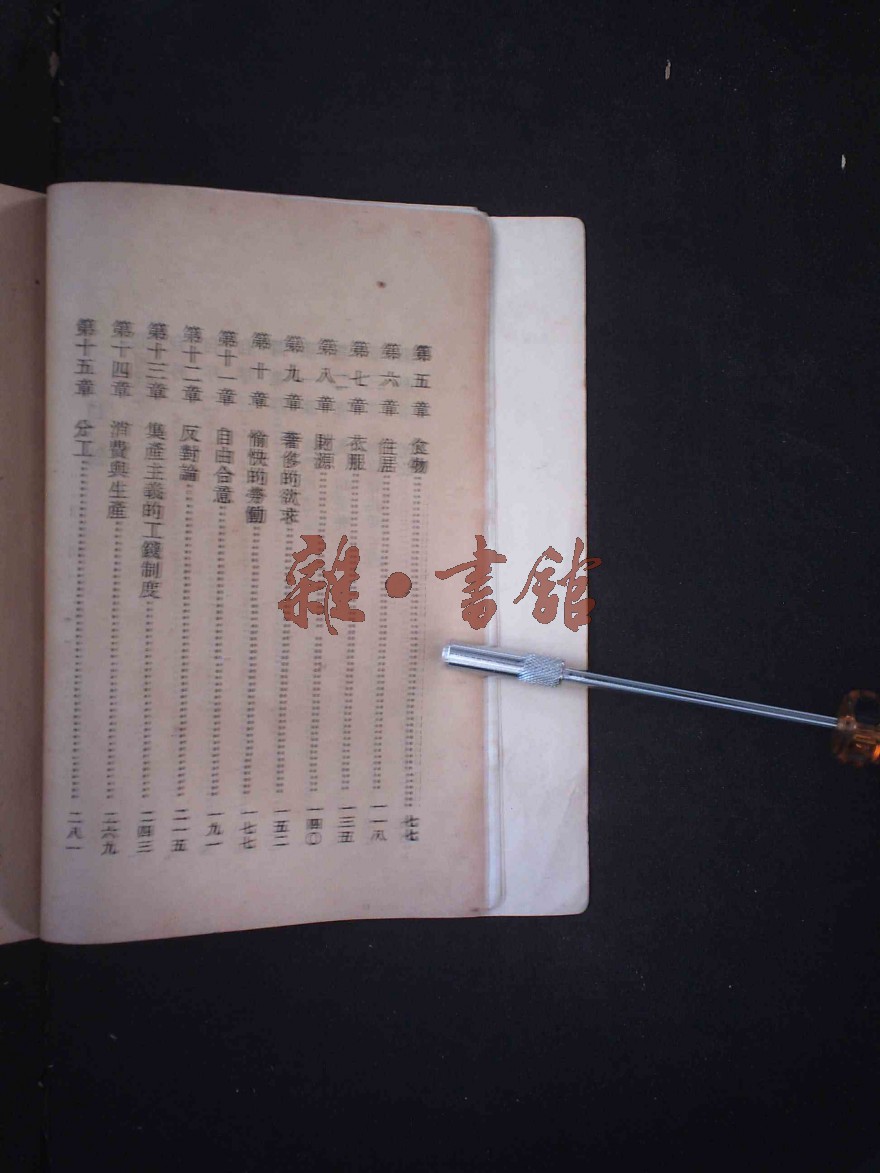 第五章 食物……七七
第六章 住居……一一八
第七章 衣服……一三五
第八章 財源……一四〇
第九章 奢侈的欲求……一五二
第十章 愉快的勞動……一七七
第十一章 自由合意……一九一
第十二章 反對論……二一五
第十三章 集產主義的工錢制度……二四三
第十四章 消費與生產……二六九
第十五章 分工……二八一
雜·書館